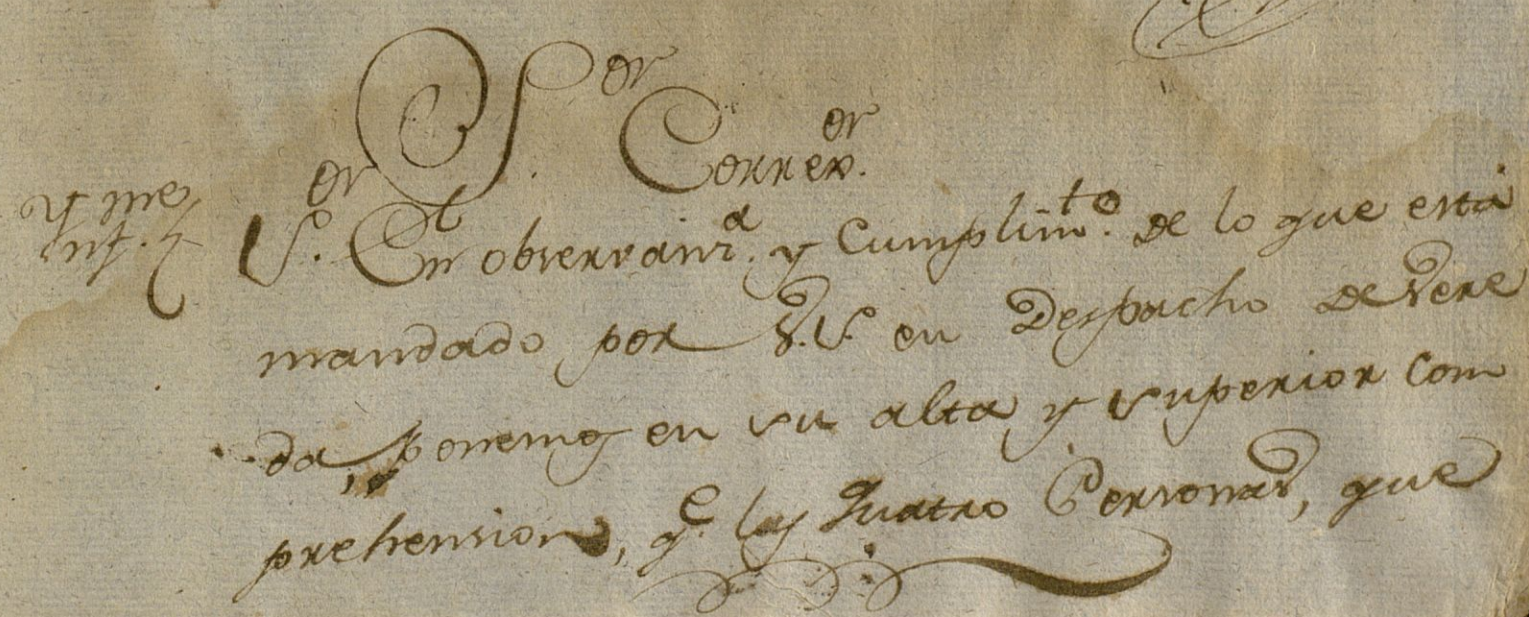 S.or Correx.or
S.or En observanz.a y Cumplim.to de lo que está
mandado por V.S. en Despacho de Vere
da, ponemos en su alta y superior com
prehension, q.e las quatro Personas, que